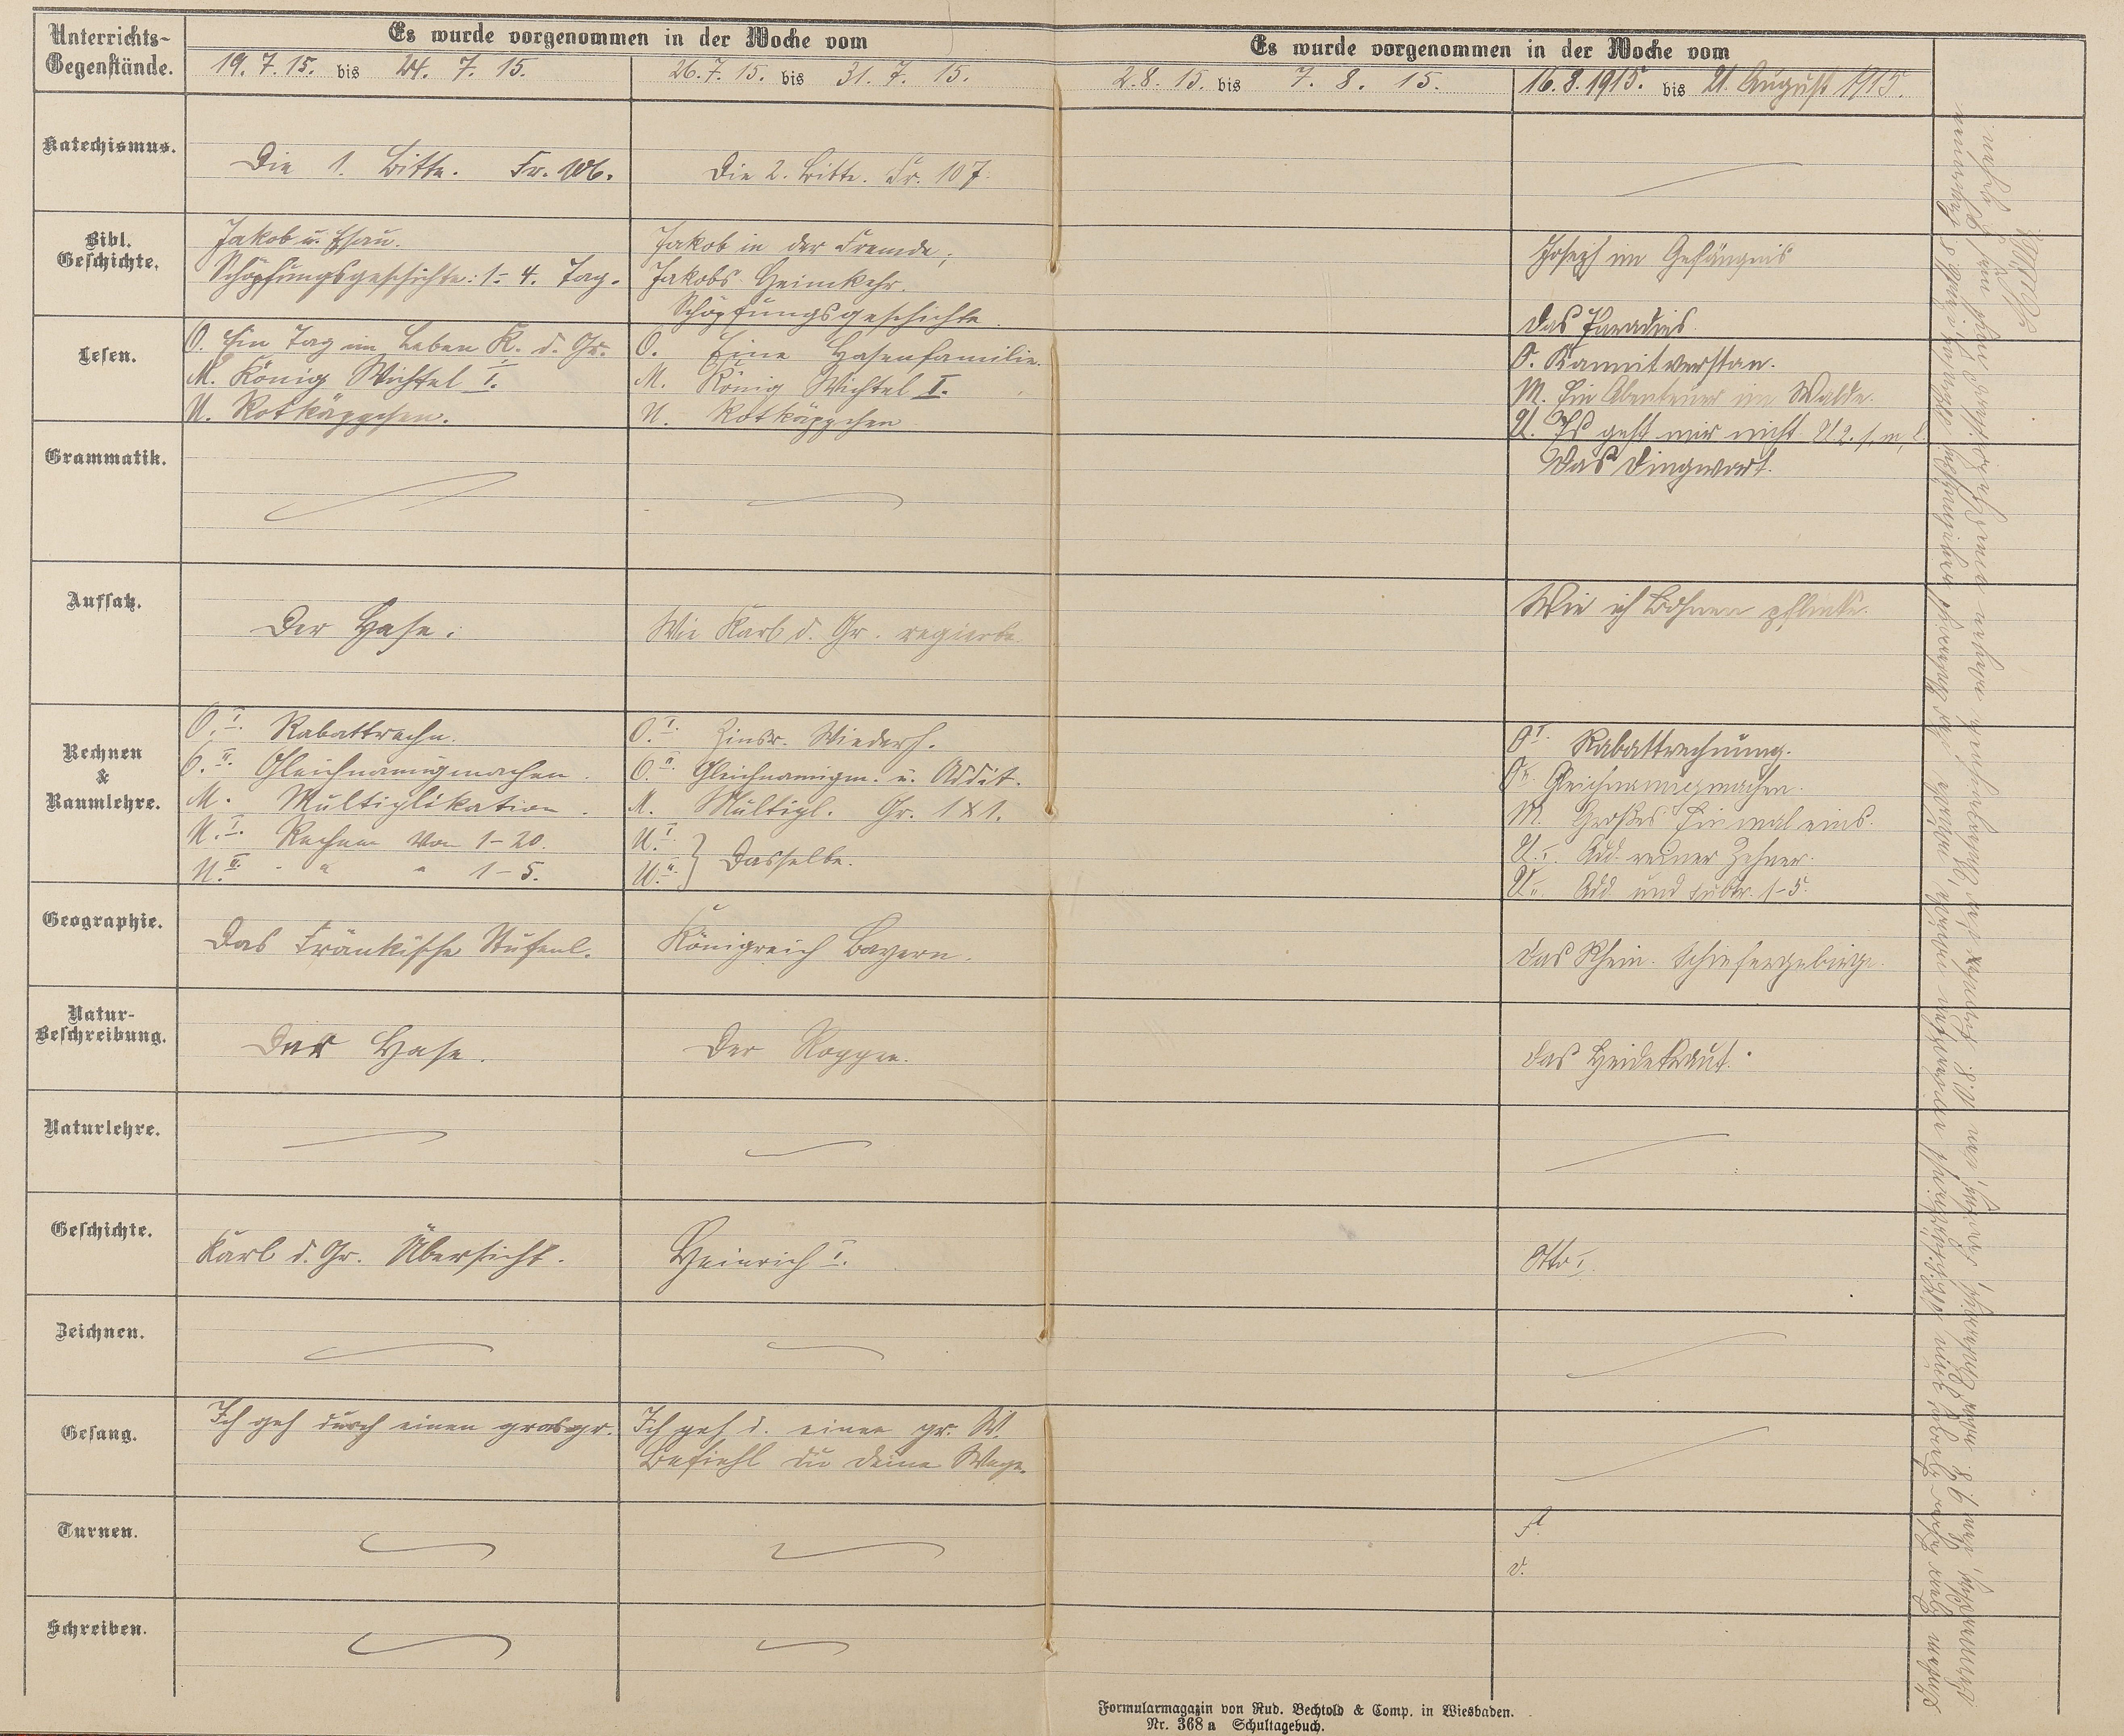 Unterrichts-
Gegenstände.
Es wurde vorgenommen in der Woche vom
Es wurde vorgenommen in der Woche vom
19. 7. 15. bis 24. 7. 15.
26. 7. 15. bis 31. 7. 15.
2. 8. 15. bis 7. 8. 15.
16. 8. 1915. bis 21. August 1915.
Katechismus.
Die 1. Bitte. Fr. 106.
Die 2. Bitte. Fr. 107.
Bibl.
Geschichte.
Jakob u. Esau.
Schöpfungsgeschichte: 1-4. Tag.
Jakob in der Fremde.
Jakobs Heimkehr.
Schöpfungsgeschichte.
Joseph im Gefängnis
Das Paradies.
Lesen.
O. Ein Tag im Leben K. d. Gr.
M. König Wichtel I.
U. Rotkäppchen.
O. Eine Hasenfamilie.
M. König Wichtel II.
U. Rotkäppchen
O. Kannitverstan.
M. Ein Abenteuer im Walde.
U. Es geht mir nicht
Grammatik.
Das Dingwort.
Aufsatz.
Der Hase.
Wie Karl d. Gr. regierte.
Wie ich Bohnen pflückte.
Rechnen
&
Raumlehre.
O. I. Rabattrechn.
O. II. Gleichnamigmachen.
M. Multiplikation.
U. I. Rechnen von 1-20.
U. II. " " " 1-5.
O. I. Zinsr. Wiederh.
O. II. Gleichnamigm. u. Addit.
M. Multipl. Gr. 1x1.
U. I.
U. II. } Dasselbe.
O I. Rabattrechnung.
O II. Gleichnamigmachen.
M. Großes Einmaleins.
U. I. Add. reiner Zehner.
U. II. Add. und Subtr. 1-5.
Geographie.
Das Fränkische Stufenl.
Königreich Bayern.
Das Rhein. Schiefergebirge.
Natur-
Beschreibung.
Der Hase.
Der Roggen.
Das Heidekraut.
Naturlehre.
Geschichte.
Karl d. Gr. Übersicht.
Heinrich I.
Otto I.
Zeichnen.
Gesang.
Ich geh durch einen grasgr.
Ich geh d. einen gr. W.
Befiehl du deine Wege.
Turnen.
Schreiben.
Formularmagazin von Rud. Bechtold & Comp. in Wiesbaden.
Nr. 368a Schultagebuch.